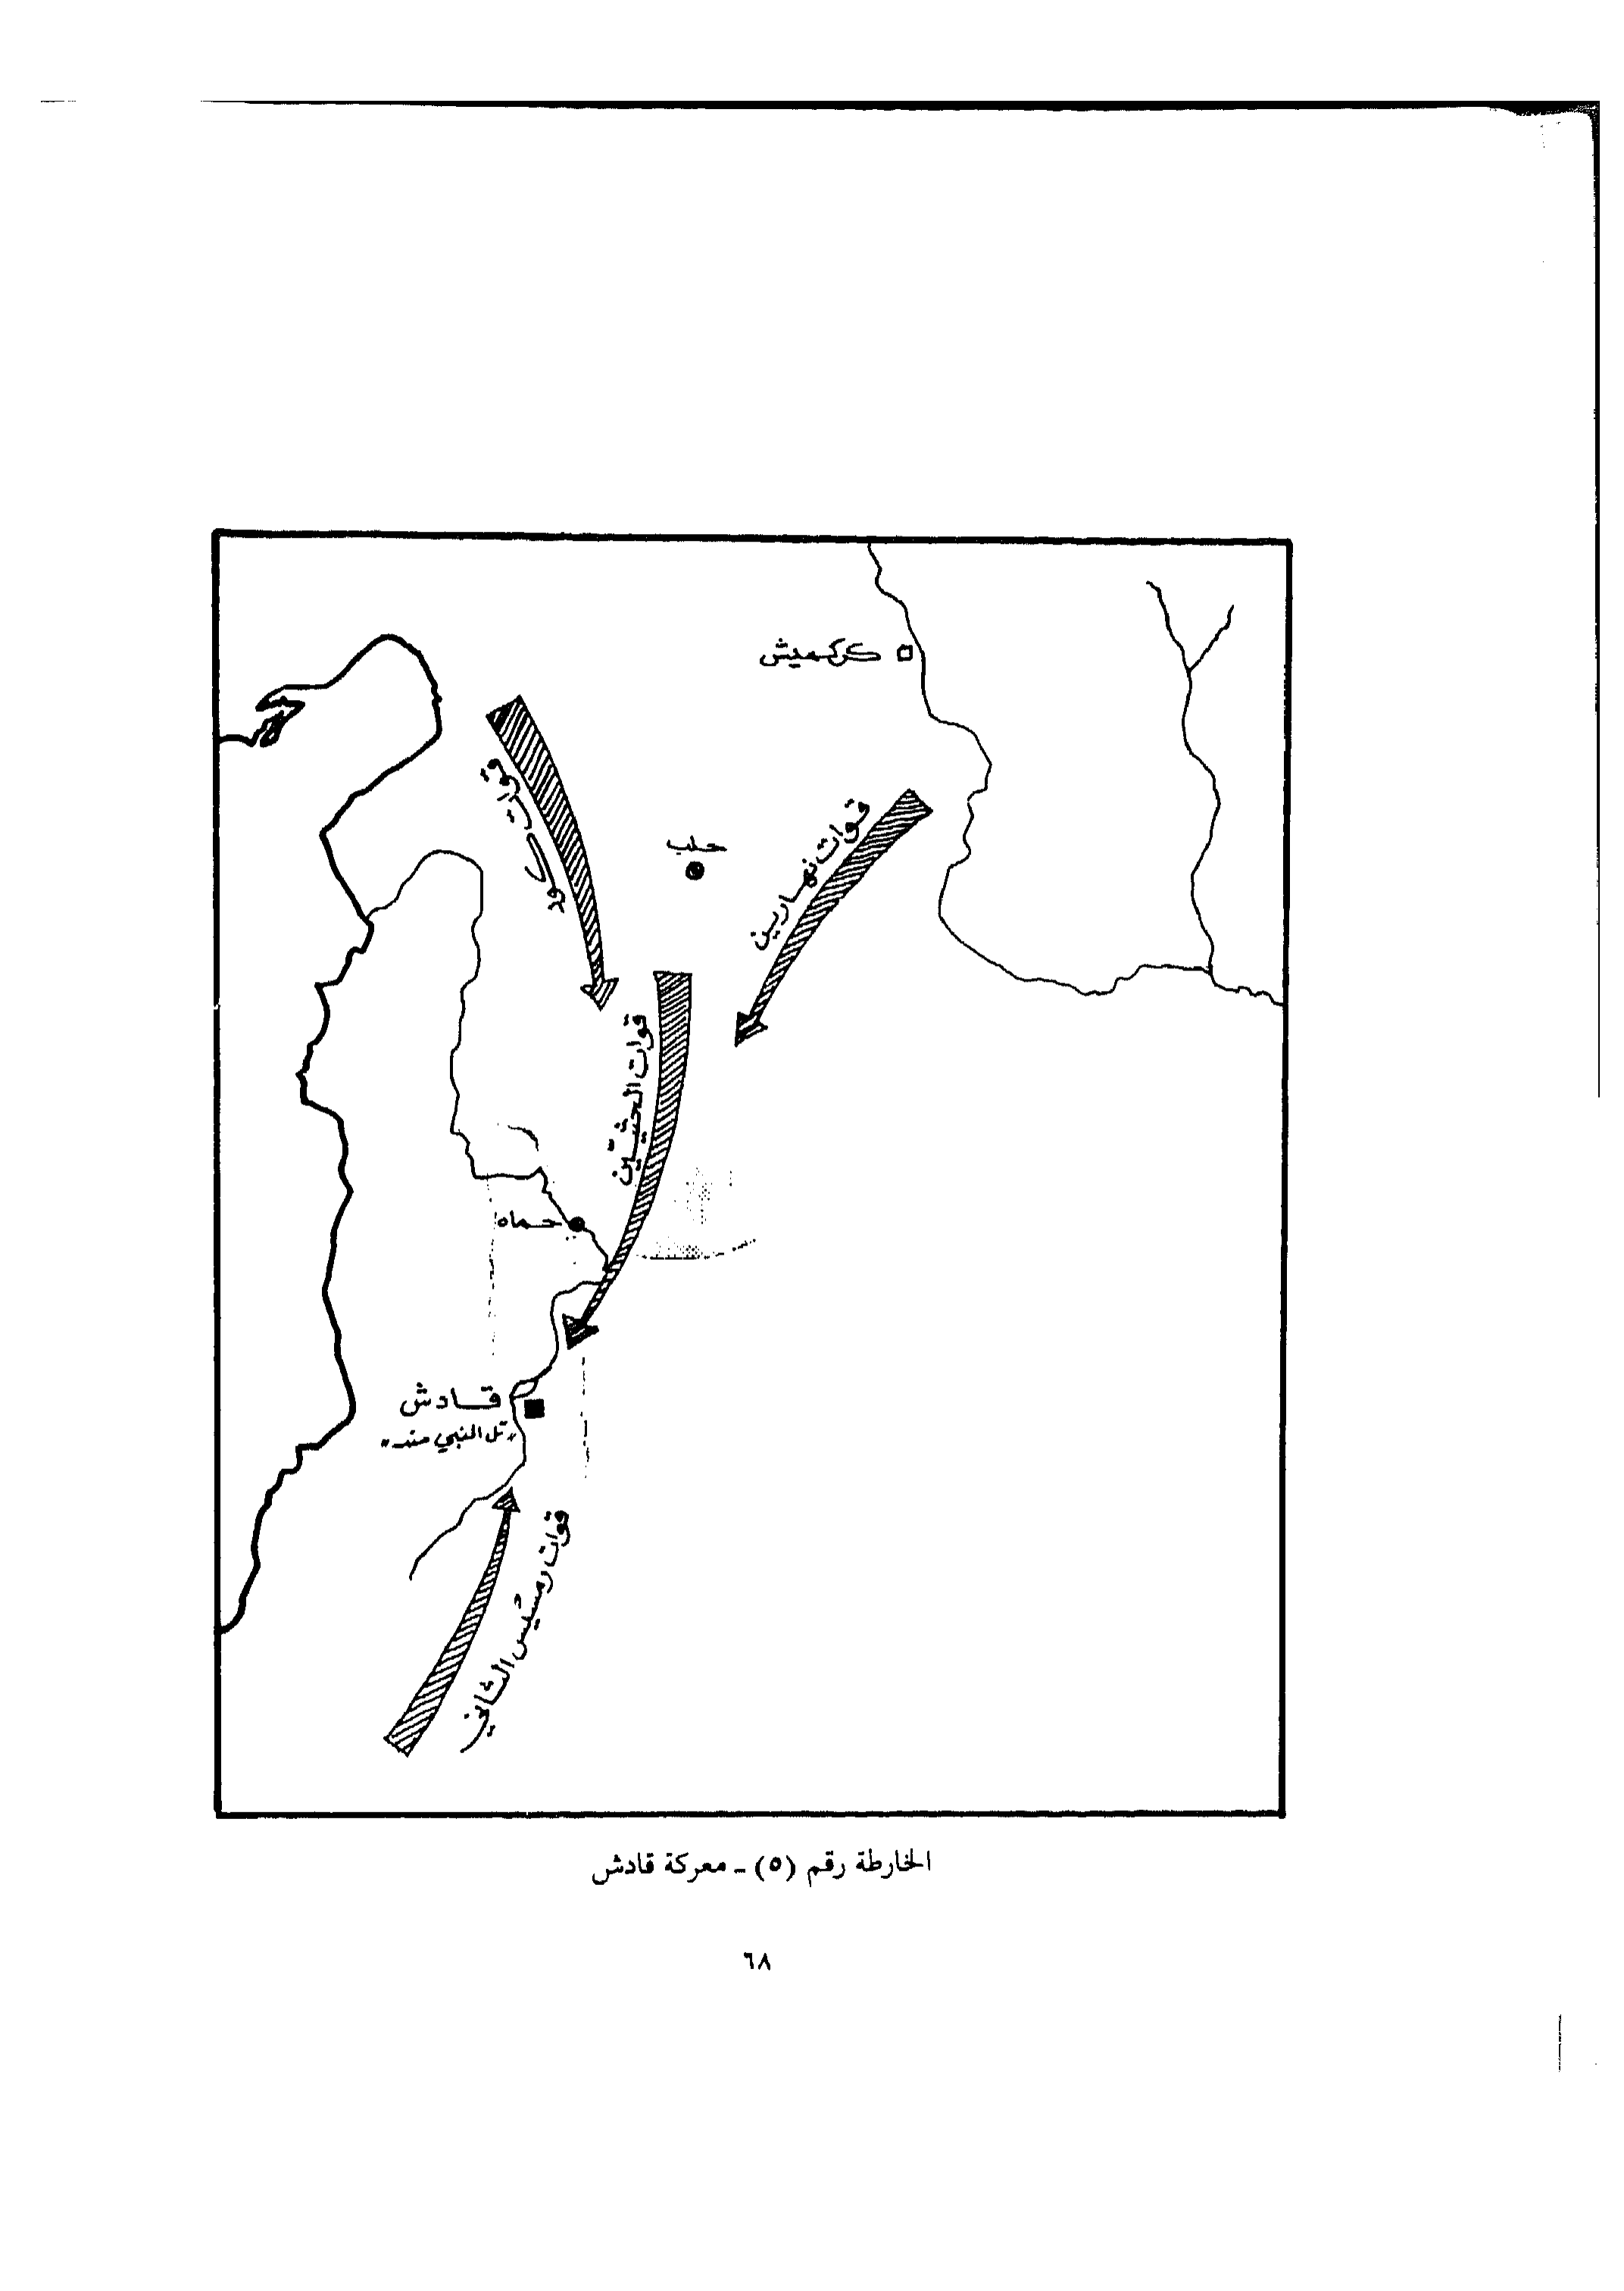 كركميش
قوات كد
حلب
قوات نهارين
قوات الحثيين
حماه
قادش
"تل النبي مند"
قوات رمسيس الثاني
الخارطة رقم (٥) - معركة قادش
٦٨